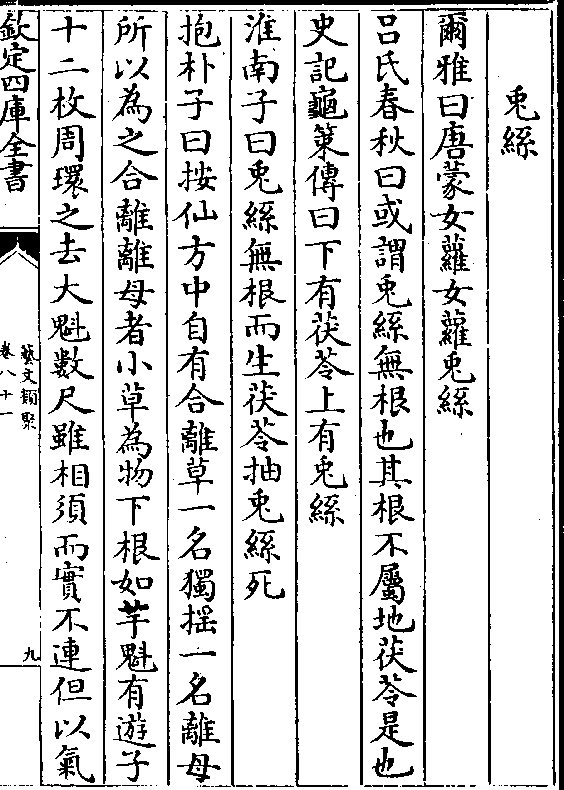 兎絲
爾雅曰唐蒙女蘿女蘿兎絲
吕氏春秋曰或謂兎絲無根也其根不屬地茯苓是也
史記龜策傳曰下有茯苓上有兎絲
淮南子曰兎絲無根而生茯苓抽兎絲死
抱朴子曰按仙方中自有合離草一名獨揺一名離母
所以為之合離離母者小草為物下根如芋魁有遊子
十二枚周環之去大魁數尺雖相須而實不連但以氣
欽定四庫全書
藝文類聚
卷八十一
九